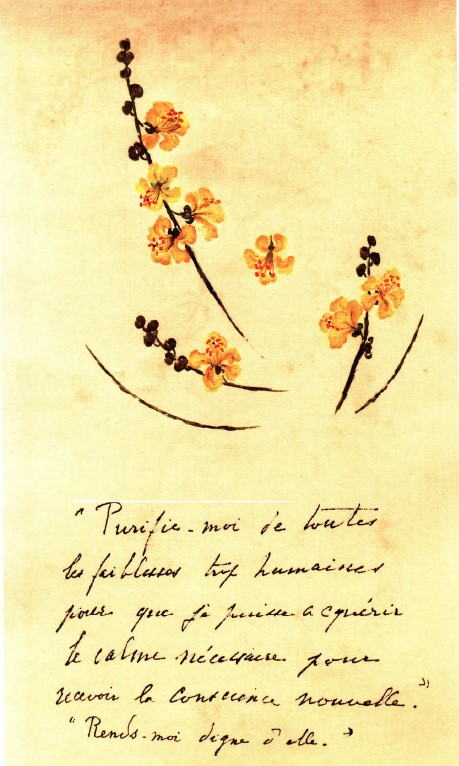 "Purifie-moi de toutes
les faiblesses trop humaines
pour que je puisse acquérir
le calme nécessaire pour
recevoir la conscience nouvelle."
"Rends-moi digne d'elle."